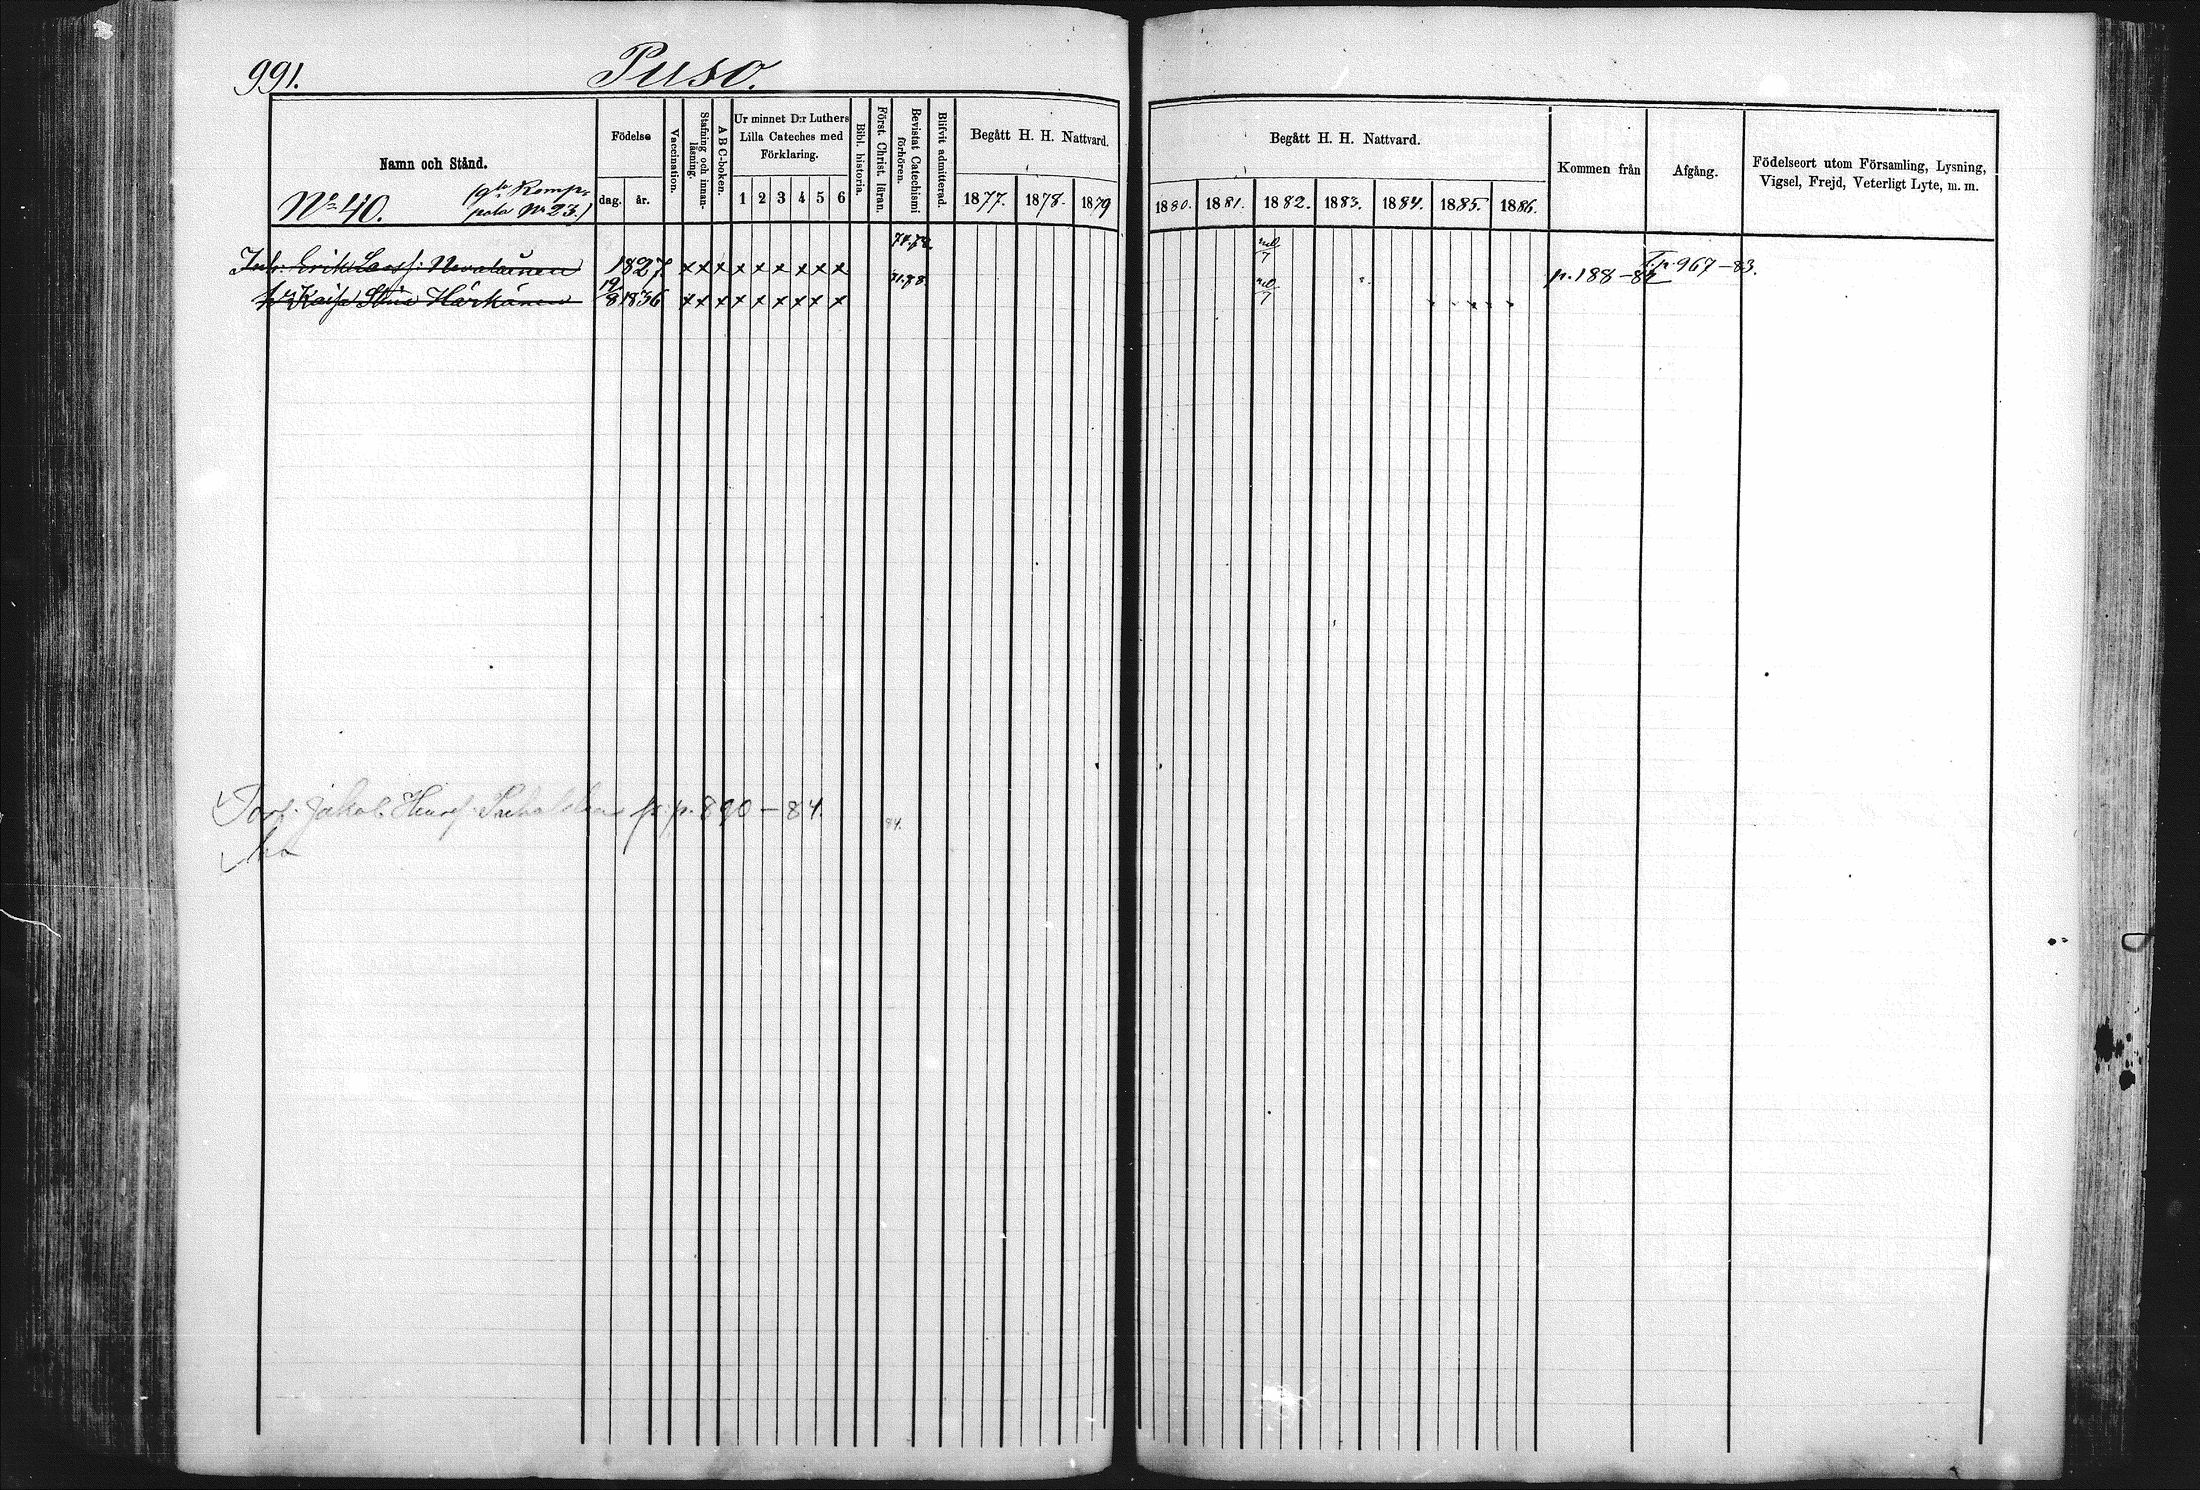 991.
Puso.
Namn och Stånd.
Födelse
dag.
år.
Vaccination.
Stafning och innan-
läsning.
ABC-boken.
Ur minnet D:r Luthers
Lilla Cateches med
Förklaring.
1 2 3 4 5 6
Bibl. historia.
Först. Christ. läran.
Bevistat Catechismi
förhören.
Blifvit admitterad.
Begått H. H. Nattvard.
1877. 1878. 1879
Begått H. H. Nattvard.
1880. 1881. 1882. 1883. 1884. 1885. 1886.
Kommen från
Afgång.
Födelseort utom Församling, Lysning,
Vigsel, Frejd, Veterligt Lyte, m. m.
No 40.
Komp.
No 23.)
Inh: Erik Nevalainen 1827. x x x x x x x x x p. 188–82 T. p. 967–83.
h. Kaisa Stina Härkönen 19/8 1836 x x x x x x x x x
Torp. Jakob Henrs: fr. p. 890–84. 84.